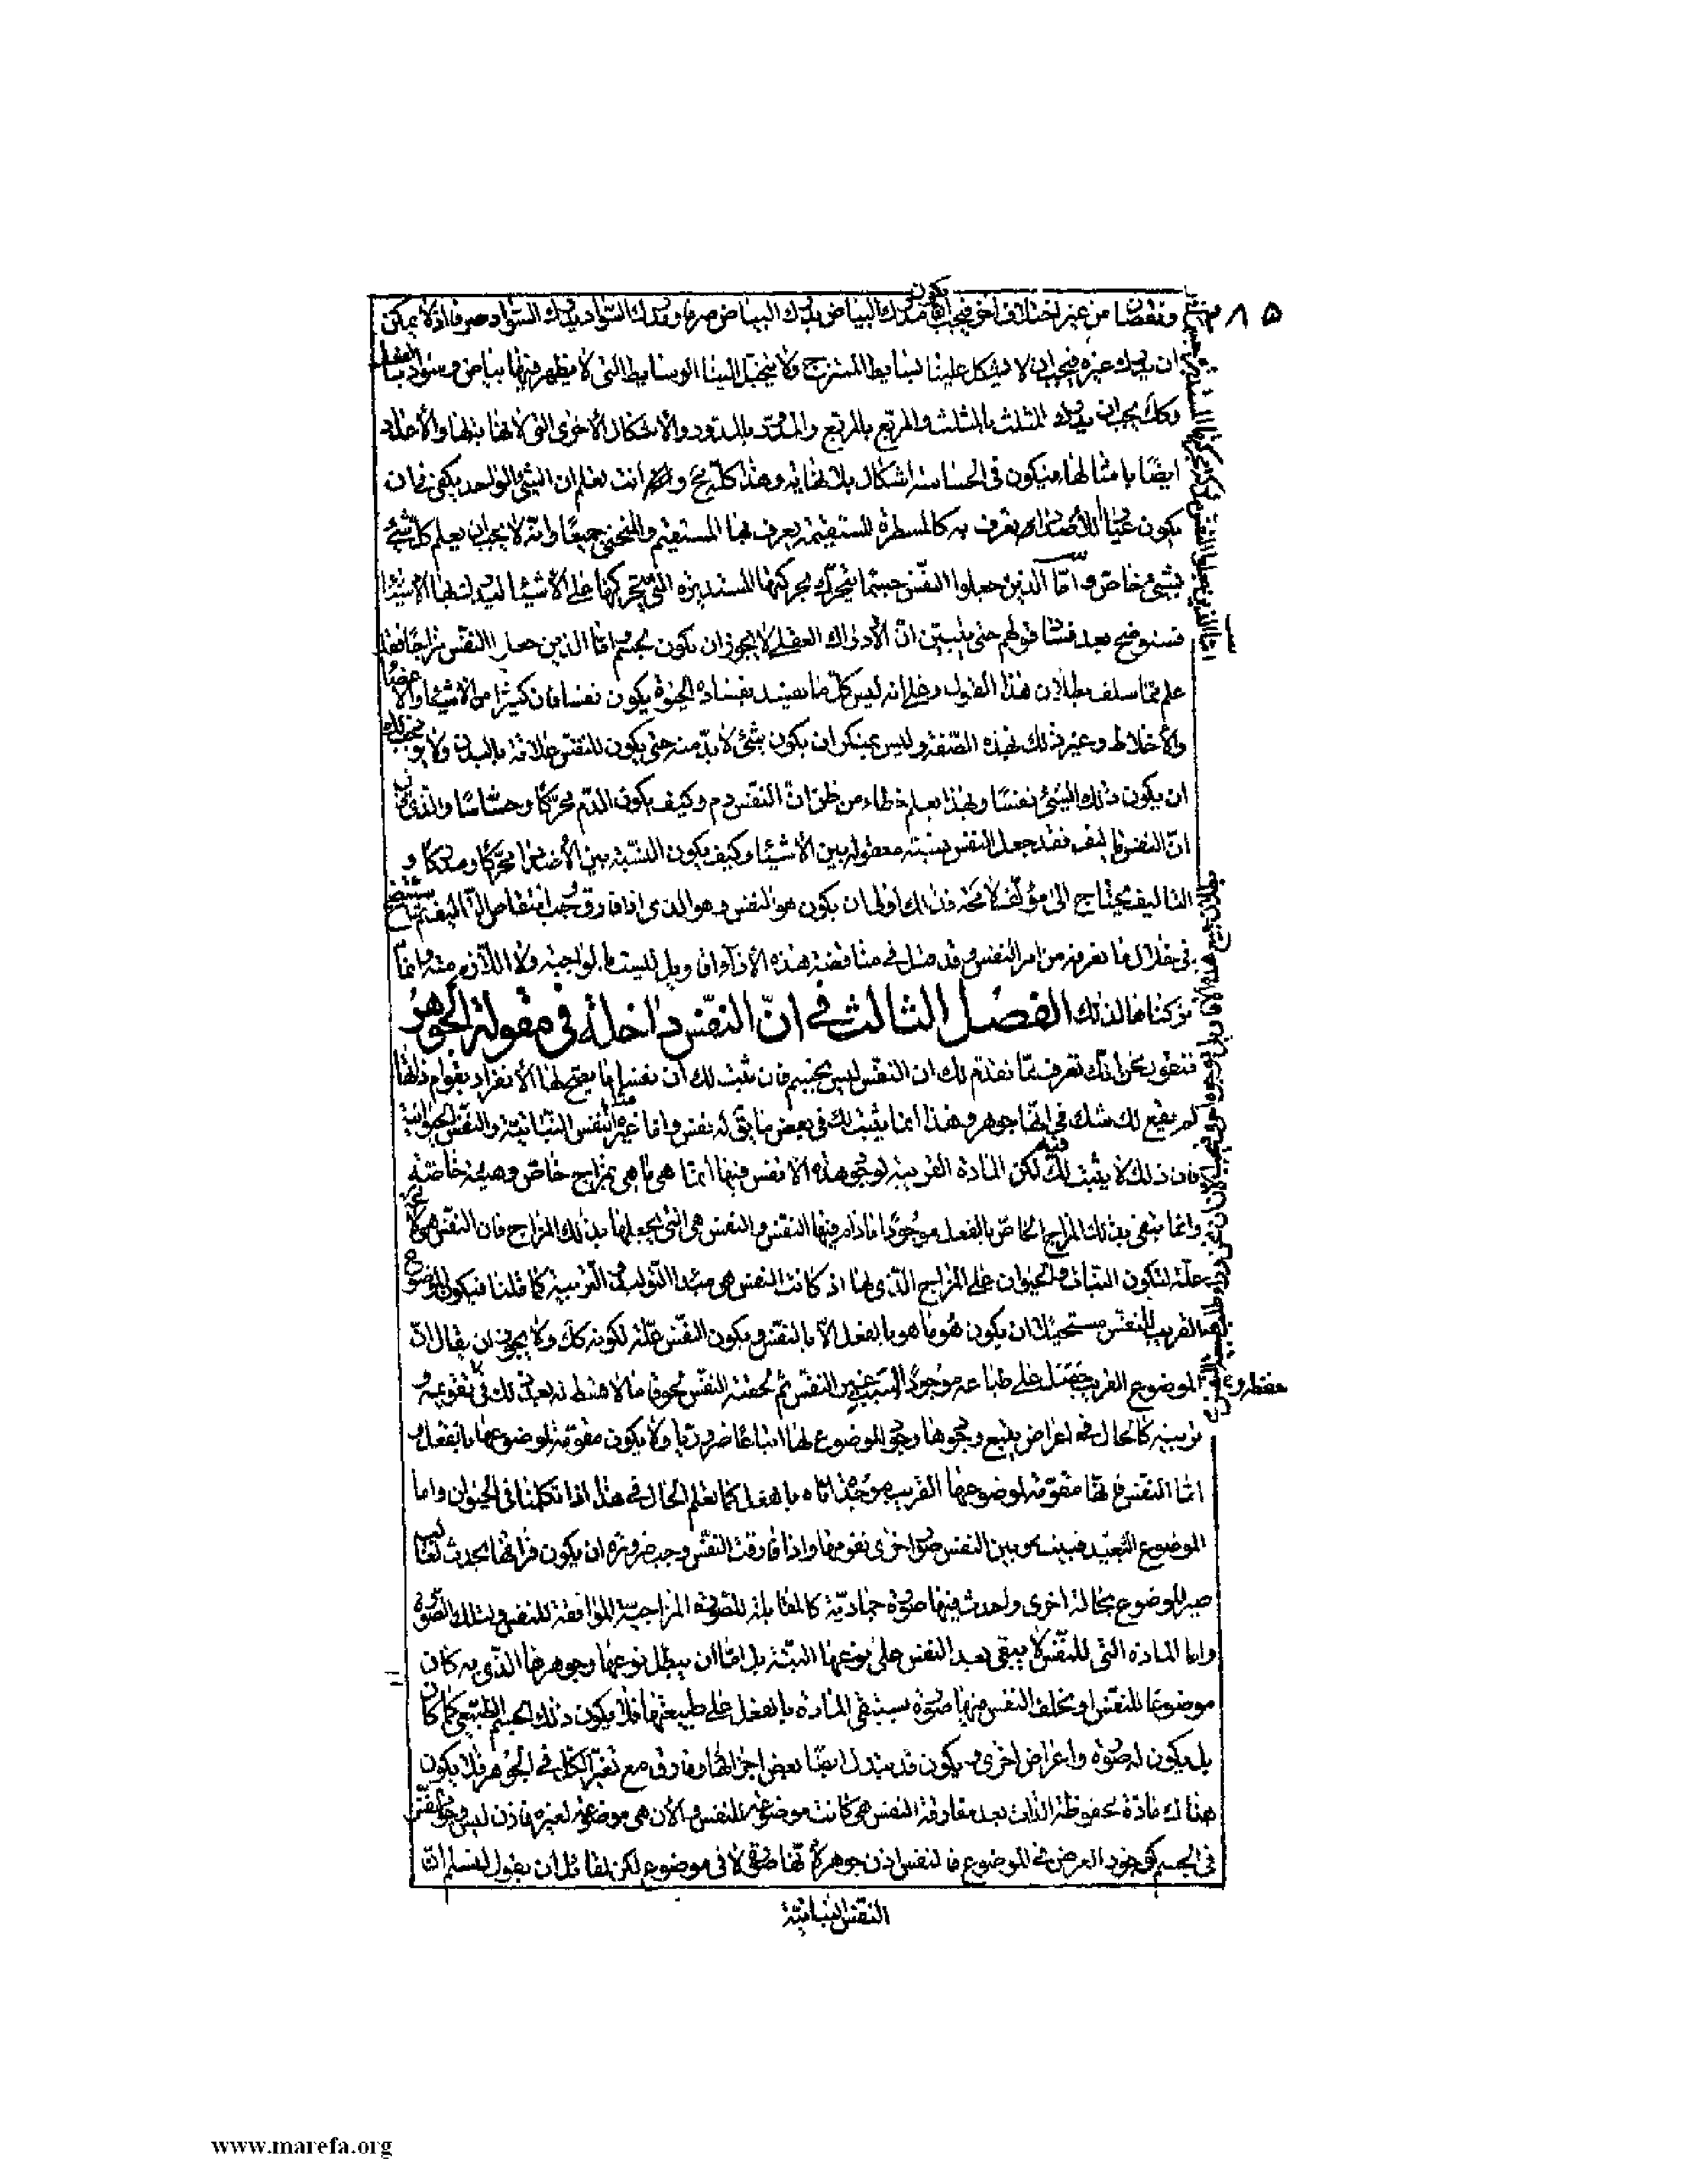 ٢٨٥
ونقصان من غير اختلاف اخر فيجب ان يكون مدرك البياض يدرك البياض صرفا ومدرك السواد يدرك السواد صرفا اذ لا يمكن
ان يدرك غيره فيجب ان لا يشكل علينا بسايط الممتزج ولا يتخيل الينا الوسايط التى لا يظهر فيها بياض وسواد بالفعل
وكك يجب ان يدرك المثلث بالمثلث والمربع بالمربع والمدور بالمدور والأشكال الأخرى التى لا نهاية لها والأعداد
ايضا بامثالها فيكون فى الحاسة اشكال بلا نهاية وهذا كله مح وانت تعلم ان الشئ الواحد يكفى فى ان
يكون عيارا للأضداد يعرف به كالمسطرة المستقيمة يعرف بها المستقيم والمنحنى جميعا وانه لا يجب ان يعلم كل شئ
بشئ خاص واما الذين جعلوا النفس جسما يتحرك بحركتها المستديرة التى يتحركها على الأشياء ليدرك بها الاشياء
فسنوضح بعد فساد قولهم حتى يتبين ان الأدراك العقلى لا يجوز ان يكون بجسم واما الذين جعلوا النفس مزاجا فقد
علم مما سلف بطلان هذا القول وعلى انه ليس كل ما يفسد بفساده الحيوة يكون نفسا فان كثيرا من الاشياء والاعضاء
والأخلاط وغير ذلك بهذه الصفة وليس بمنكر ان يكون شئ لا بد منه حتى يكون للنفس علاقة بالبدن ولا يوجب ذلك
ان يكون ذلك الشئ نفسا وبهذا يعلم خطاء من ظن ان النفس دم وكيف يكون الدم محركا وحساسا والذى قال
ان النفس تاليف فقد جعل النفس نسبة معقولة بين الأشياء وكيف يكون النسبة بين الأضداد محركا ومدركا و
التاليف يحتاج الى مؤلف لا محة فذلك اولى ان يكون هو النفس وهو الذى اذا فارق وجب انتقاض التاليف ثم سيتضح
فى خلال ما نعرفه من امر النفس وقد قيل فى مناقضة هذه الأراء اقاويل ليست بالواجبة ولا اللازمة وانما
تركناها لذلك الفصل الثالث فى ان النفس داخلة فى مقولة الجوهر
فنقول نحن انك تعرف مما تقدم لك ان النفس ليس بجسم فان ثبت لك ان نفسا ما يصح لها الأنفراد بقوام ذاتها
لم يقع لك شك فى انها جوهر وهذا انما يثبت لك فى بعض ما يق له نفس واما غيره مثل النفس النباتية والنفس الحيوانية
فان ذلك لا يثبت لك فيه لكن المادة القريبة لوجود هذه الانفس فيها انما هى ما هى بمزاج خاص وهيئة خاصة
وانما تبقى بذلك المزاج الخاص بالفعل موجودا ما دام فيها النفس والنفس هى التى يجعلها بذلك المزاج فان النفس هى لا محة
علة لتكون النبات والحيوان على المزاج الذى لها اذ كانت النفس هى مبدا التوليد والتربية كما قلنا فيكون الموضوع
القريب للنفس مستحيلا ان يكون هو ما هو بالفعل الا بالنفس ويكون النفس علة لكونه كك ولا يجوز ان يقال ان
الموضوع القريب حصل على طباعه موجودا لسبب غير النفس ثم لحقته النفس لحوق ما لا قسط له بعد ذلك فى حفظه وتقويمه و
تربيته كالحال فى اعراض يتبع وجودها وجود الموضوع لها اتباعا ضروريا ولا يكون مقومة لموضوعها بالفعل و
اما النفس فانها مقومة لموضوعها القريب موجدة اياه بالفعل كما تعلم الحال فى هذا اذا تكلمنا فى الحيوان واما
الموضوع البعيد فبينه وبين النفس صور اخرى تقومها واذا فارقت النفس وجب ضرورة ان يكون فراقها يحدث لغالب
صير الموضوع بحالة اخرى واحدث فيها صورة جمادية كالمقابلة للصورة المزاجية الموافقة للنفس ولتلك الصورة
واما المادة التى للنفس لا يبقى بعد النفس على نوعها البتة بل اما ان يبطل نوعها وجوهرها الذى به كان
موضوعا للنفس او يخلف النفس فيها صورة يستبقى المادة بالفعل على طبيعتها فلا يكون ذلك الجسم الطبيعى كما كان
بل يكون له صورة واعراض اخرى ويكون قد تبدل ايضا بعض اجزائها وفارق مع تغير الكل فى الجوهر فلا يكون
هناك مادة محفوظة الذات بعد مفارقة النفس هى كانت موضوعة للنفس والأن هى موضوعة لغيره فاذن ليس وجود النفس
فى الجسم كوجود العرض فى الموضوع فالنفس اذن جوهر لأنها صورة لا فى موضوع لكن لقائل ان يقول لنسلم ان
النفس النباتية
www.marefa.org